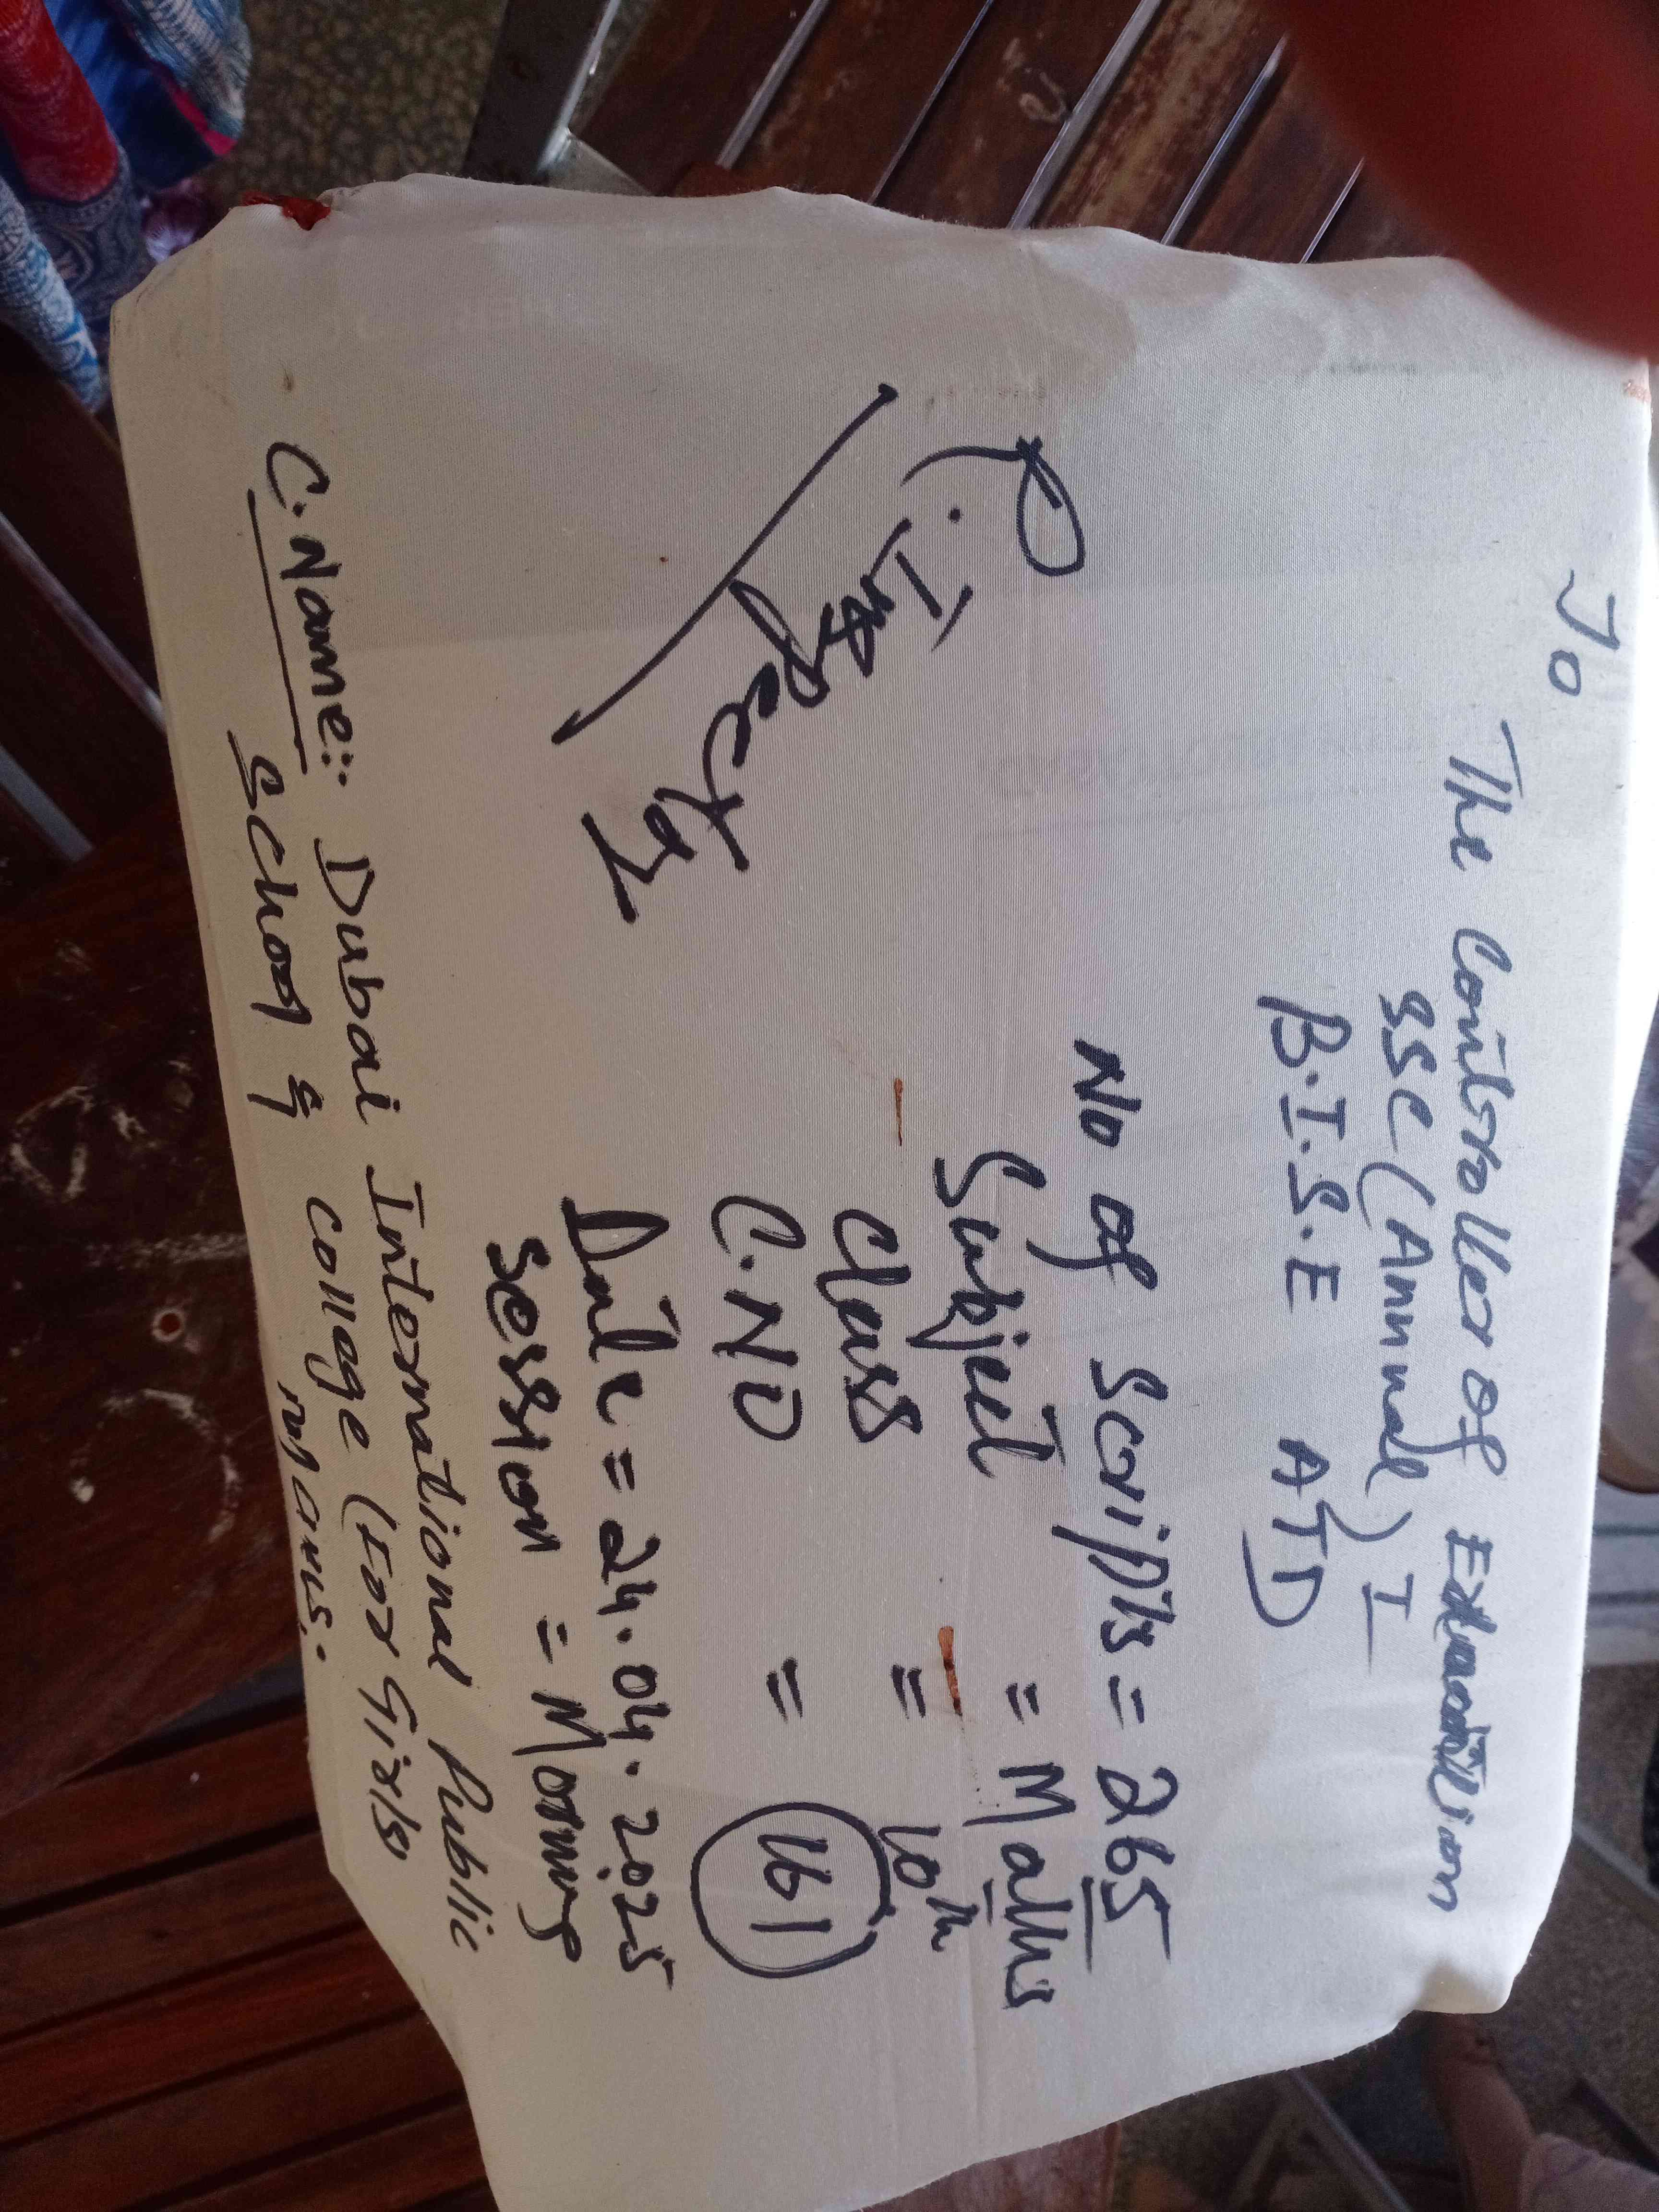 To
The Controller of Examination
SSC (Annual) I
B.I.S.E ATD
No of Scripts = 265
Subject = Maths
Class = 10th
C.NO = 161
Date = 24.04.2025
Session = Morning
R. Inspector
C.Name:: Dubai International Public
School & College (For Girls)